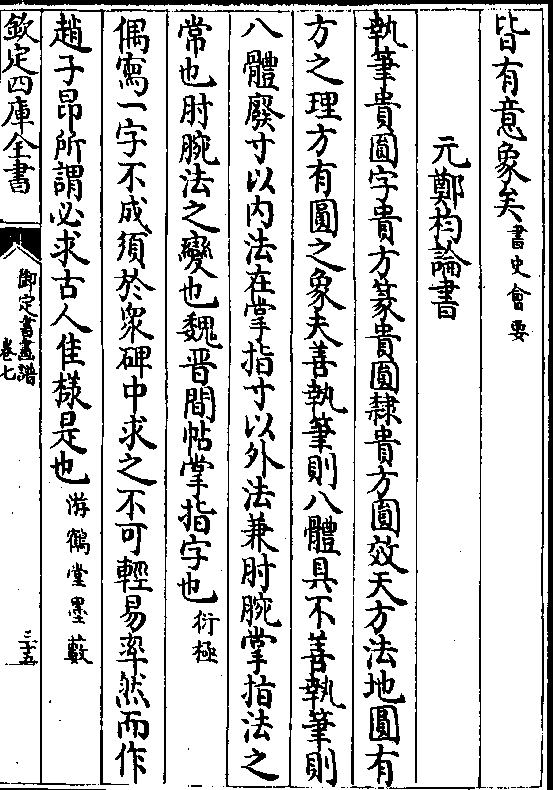 皆有意象矣書史會要
元鄭杓論書
執筆貴圎字貴方篆貴圎隸貴方圎效天方法地圓有
方之理方有圓之象夫善執筆則八體具不善執筆則
八體廢寸以内法在掌指寸以外法兼肘腕掌指法之
常也肘腕法之變也魏晋間帖掌指字也衍極
偶寫一字不成須於衆碑中求之不可輕易率然而作
趙子昂所謂必求古人佳様是也游鶴堂墨藪
欽定四庫全書
御定書畫譜
卷七
三十五